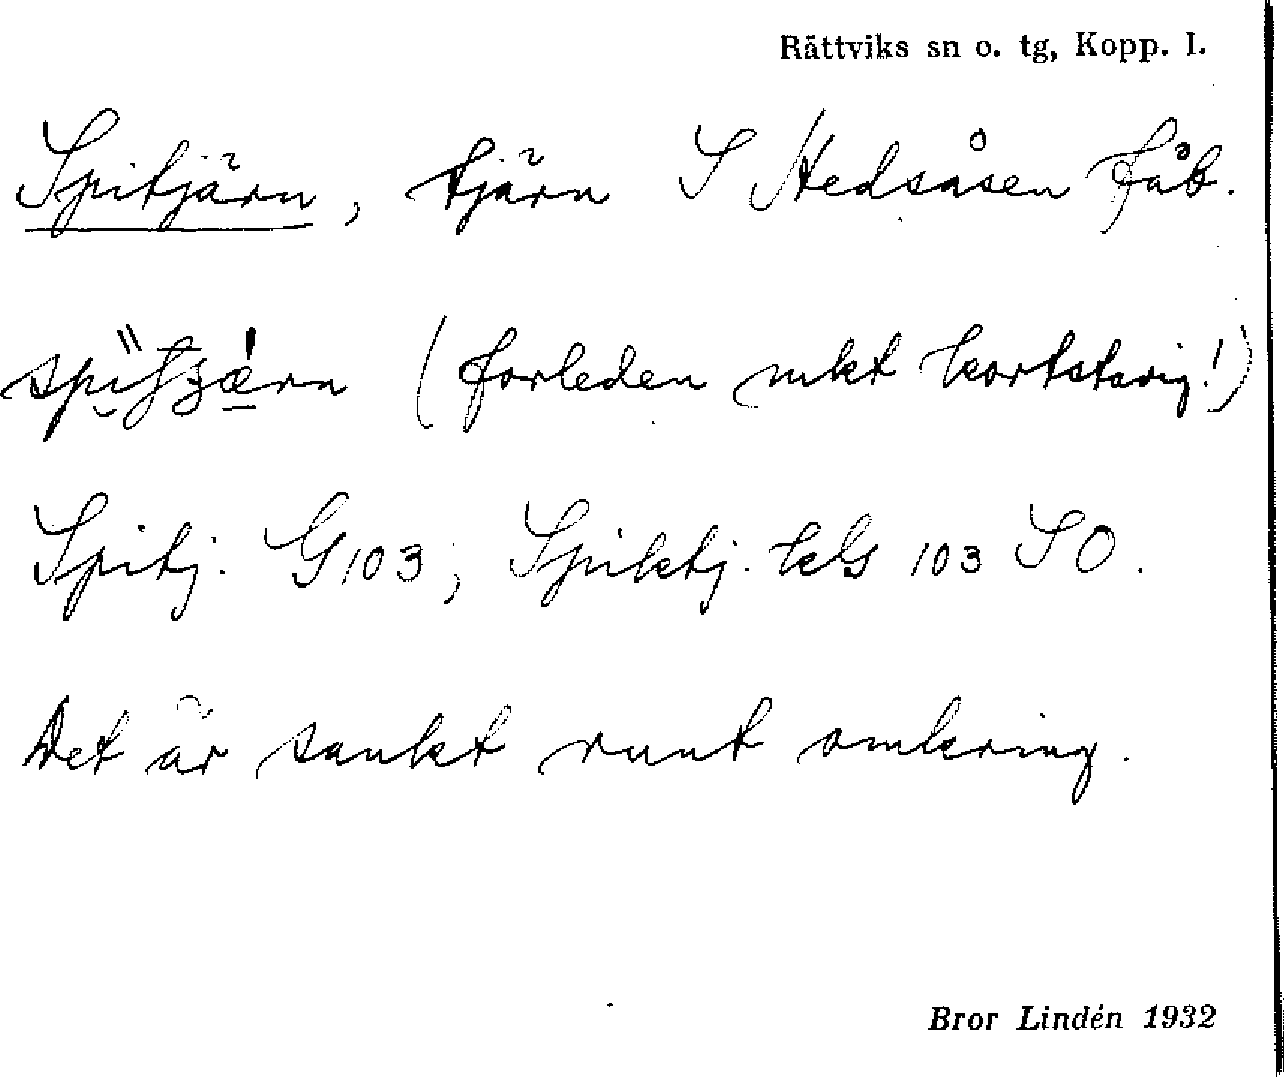 Rättviks sn o. tg, Kopp. l.
Spitjärn, tjärn S Hedsåsen fåb.
(förleden mkt kortstavig!)
Spitj. G 103; Spiktj. kls 103 SO.
Det är sankt runt omkring.
Bror Lindén 1932